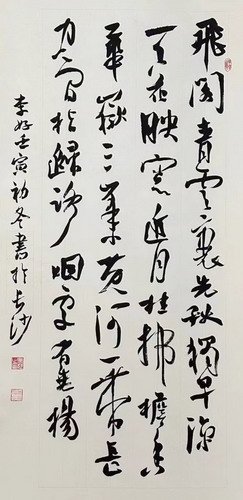 飛閣青雲裏先秋獨早涼
天花映窗近月桂拂檐香
華嶽三峯小黄河一帶長
空間指歸路烟處有垂楊
李好壬寅初冬書於長沙